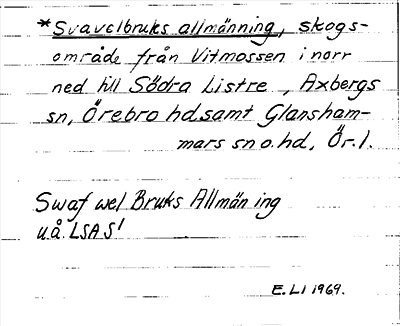 *Svavelbruks allmänning, skogs-
område från Vitmossen i norr
ned till Södra Listre, Axbergs
sn, Örebro hd.samt Glansham-
mars sn o. hd, Ör. l.
Swaf wel Bruks Allmän ing
u.å. LSA S1
E. LI 1969.